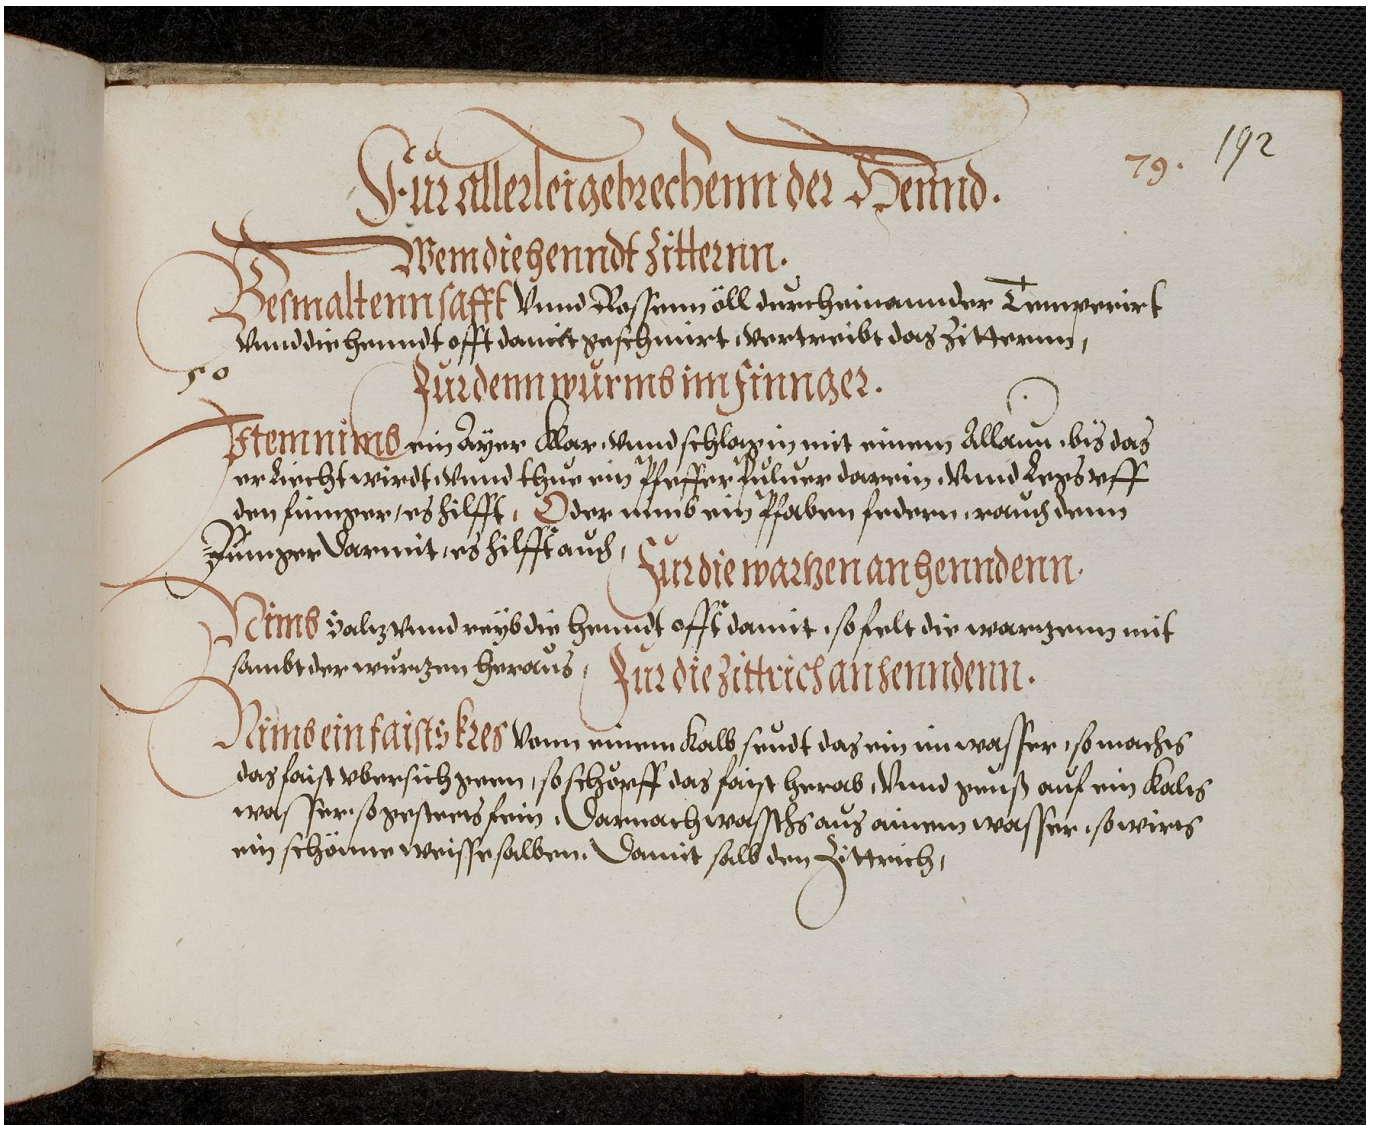 192
79.
Für allerlei gebrechenn der Hennd.
Wem die henndt Zitternn.
Besmaltenn safft Vnnd Rossenn öll durcheinannder Temperirt
Vnnd die henndt offt damit geschmirt, vertreibt das Zitternn,
50
Fur denn wurmb im finnger.
Item nimb ein Ayer Klar, vnnd schlag in mit einem Allaun, bis das
er Liecht wirdt, vnnd thue ein Pfeffer Puluer darein, Vnnd Legs vff
den finnger, es hilfft, Oder nimb ein Pfaben federn, rauch denn
Finnger Darmit, es hilfft auch,
Fur die wartzen an henndenn.
Nimb Saltz vnnd reyb die henndt offt damit, so felt die wartzenn mit
sambt der wurtzen heraus,
Fur die Zittrich an henndenn.
Nimb ein faists kres Vonn einem Kalb, seudt das ein im wasser, so machts
das faist vbersich geen, so schöpff das faist herab, Vnnd geuß auf ein Kalts
wasser, so gesteets fein, Darnach waschs aus ainem wasser, so wirts
ein schönne weisse salben, Damit salb den Zittrich,